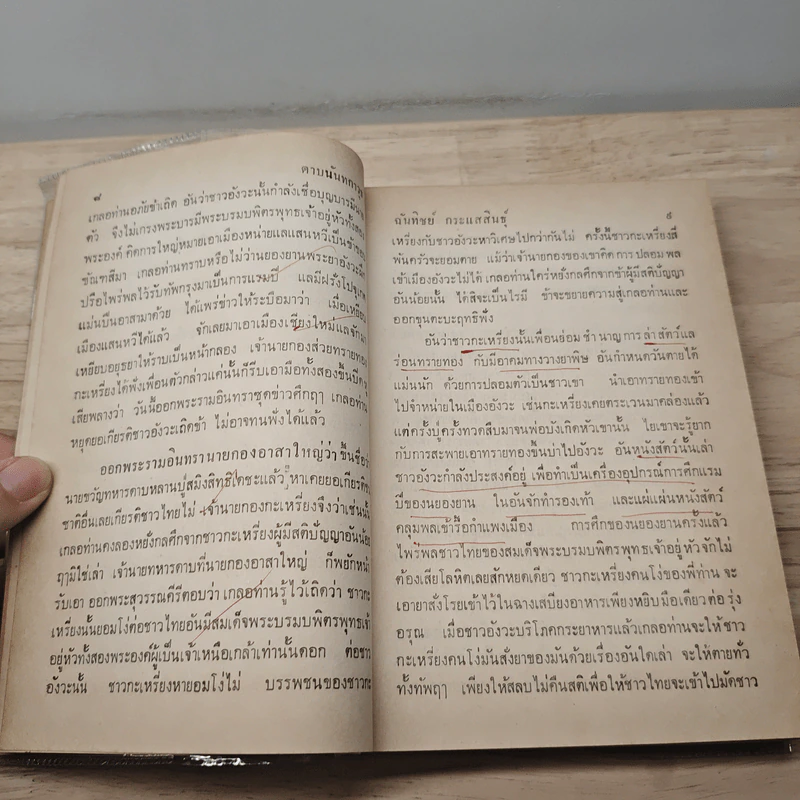 ๘
ดาบนันทก
เกลอท่านอภัยข้าเถิด อันว่าชาวอังวะนั้นกำลังเชื่อบุญบารมี
ตัว จึงไม่เกรงพระบารมีพระบรมบพิตรพุทธเจ้าอยู่หัวทั้งสอง
พระองค์ คิดการใหญ่หมายเอาเมืองหน่ายแลแสนหวีเป็น
ขัณฑสีมา เกลอท่านทราบหรือไม่ว่านยองยานพระยาอังวะ
ปรือไพร่พลไว้รับทัพกรุงมาเป็นการแรมปี แลมีฝรั่งโปรตุเกศ
แม่นปืนอาสามาด้วย ได้แพร่ข่าวให้ระบือมาว่า เมื่อเหยียบ
เมืองแสนหวีได้แล้ว จักเลยมาเอาเมืองเชียงใหม่แลจัก
เหยียบอยุธยาให้ราบเป็นหน้ากลอง เจ้านายกองส่วยทรายทอง
กะเหรี่ยงได้ฟังเพื่อนตัวกล่าวแค่นั้นก็รีบเอามือทั้งสองขึ้นปิดหู
เสียพลางว่า วันนี้ออกพระรามอินทราชุดข่าวศึกฤๅ เกลอท่าน
หยุดยอเกียรติชาวอังวะเถิดข้า ไม่อาจทนฟังได้แล้ว
ออกพระรามอินทรานายกองอาสาใหญ่ว่า ขึ้นชื่อว่า
นายขวัญทหารดาบหลานปู่สมิงสิทธิเดชะแล้ว หาเคยยอเกียรติ
ชาติอื่นเลยเกียรติชาวไทยไม่ เจ้านายกองกะเหรี่ยงจึงว่าเช่นนั้น
เกลอท่านคงลองหยั่งกลศึกจากชาวกะเหรี่ยงผู้มีสติปัญญาอันน้อย
ฤๅมิใช่เล่า เจ้านายทหารดาบที่นายกองอาสาใหญ่ ก็พยักหน้า
รับเอา ออกพระสุวรรณคีรีตอบว่า เกลอท่านรู้ไว้เถิดว่า ชาวกะ
เหรี่ยงนั้นยอมโง่ต่อชาวไทยอันมีสมเด็จพระบรมบพิตรพุทธเจ้า
อยู่หัวทั้งสองพระองค์ผู้เป็นเจ้าเหนือเกล้าเท่านั้นดอก ต่อชาว
อังวะนั้น ชาวกะเหรี่ยงหายอมโง่ไม่ บรรพชนของชาวกะ
ฉันทิชย์ กระแสสินธุ์
๙
เหรี่ยงกับชาวอังวะหาวิเศษไปกว่ากันไม่ ครั้งนี้ชาวกะเหรี่ยงสี่
พันครัวจะยอมตาย แม้ว่าเจ้านายกองของเขาคิดการปลอมพล
เข้าเมืองอังวะไม่ได้ เกลอท่านใคร่หยั่งกลศึกจากข้าผู้มีสติปัญญา
อันน้อยนั้น ได้สิจะเป็นไรมี ข้าจะขยายความสู่เกลอท่านและ
ออกขุนตะบะฤทธิฟัง
อันว่าชาวกะเหรี่ยงนั้นเพื่อนย่อมชำนาญการล่าสัตว์แล
ร่อนทรายทอง กับมีอาคมทางวางยาพิษ อันกำหนดวันตายได้
แม่นนัก ด้วยการปลอมตัวเป็นชาวเขา นำเอาทรายทองเข้า
ไปจำหน่ายในเมืองอังวะ เช่นกะเหรี่ยงเคยตระเวนมาคล่องแล้ว
แต่ครั้งปู่ครั้งทวดสืบมาจนพ่อบังเกิดหัวเขานั้น ไยเขาจะรู้ยาก
กับการสะพายเอาทรายทองขึ้นบ่าไปอังวะ อันหนังสัตว์นั้นเล่า
ชาวอังวะกำลังประสงค์อยู่ เพื่อทำเป็นเครื่องอุปกรณ์การศึกแรม
ปีของนยองยาน ในอันจักทำรองเท้า และแผ่แผ่นหนังสัตว์
คลุมพลเข้ารื้อกำแพงเมือง การศึกของนยองยานครั้งแล้ว
ไพร่พลชาวไทยของสมเด็จพระบรมบพิตรพุทธเจ้าอยู่หัวจักไม่
ต้องเสียโลหิตเลยสักหยดเดียว ชาวกะเหรี่ยงคนโง่ของพี่ท่าน จะ
เอายาสั่งโรยเข้าไว้ในฉางเสบียงอาหารเพียงหยิบมือเดียวต่อ รุ่ง
อรุณ เมื่อชาวอังวะบริโภคกระยาหารแล้วเกลอท่านจะให้ชาว
กะเหรี่ยงคนโง่มันสั่งยาของมันด้วยเรื่องอันใดเล่า จะให้ตายทั่ว
ทั้งทัพฤๅ เพียงให้สลบไม่คืนสติเพื่อให้ชาวไทยจะเข้าไปมัดชาว